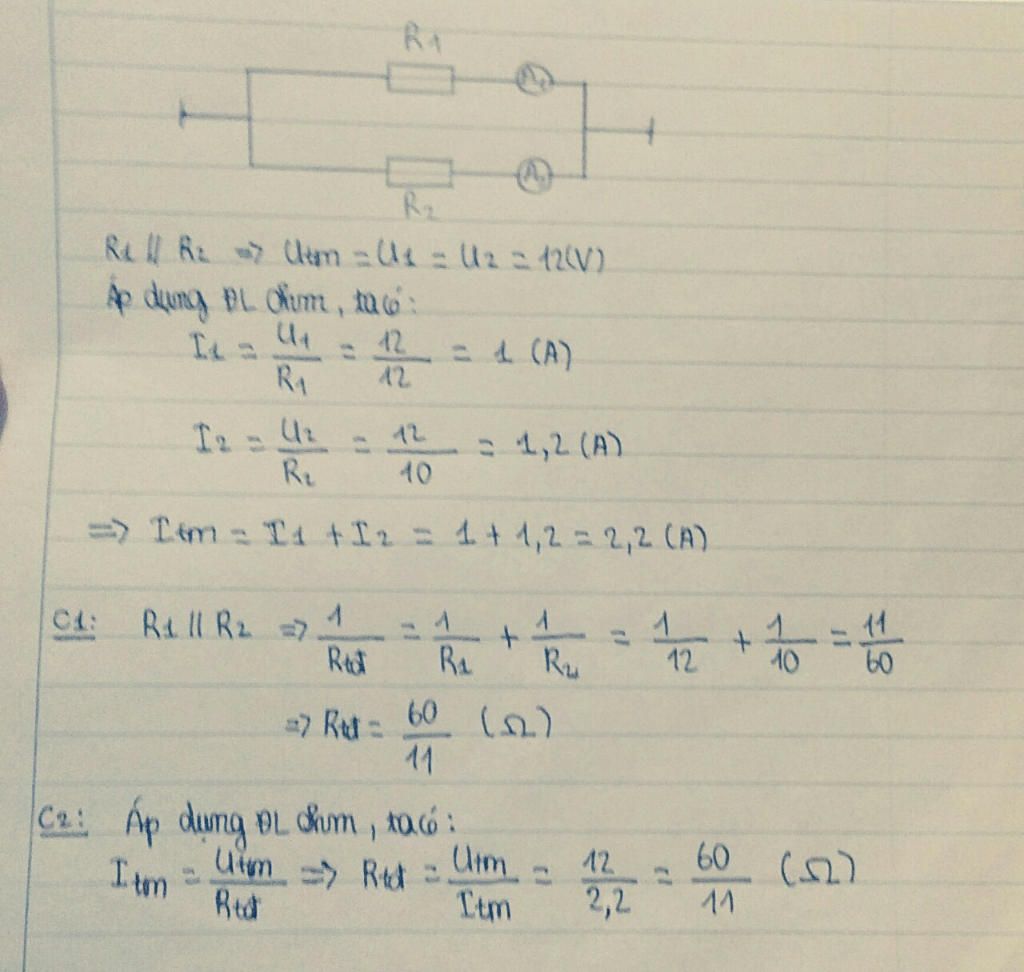 R1
A1
A2
R2
R1 // R2 => Utm = U1 = U2 = 12(V)
Áp dụng ĐL Ohm, ta có:
I1 = U1/R1 = 12/12 = 1 (A)
I2 = U2/R2 = 12/10 = 1,2 (A)
=> Itm = I1 + I2 = 1 + 1,2 = 2,2 (A)
C1: R1 // R2 => 1/Rtđ = 1/R1 + 1/R2 = 1/12 + 1/10 = 11/60
=> Rtđ = 60/11 (Ω)
C2: Áp dụng ĐL Ohm, ta có:
Itm = Utm/Rtđ => Rtđ = Utm/Itm = 12/2,2 = 60/11 (Ω)